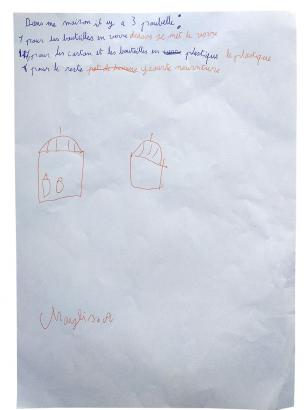 Dans ma maison il y a 3 poubelle :
1 pour les bouteilles en verre dessous se met le verre
1 pour les carton et les bouteilles en plastique le plastique
1 pour le reste nourriture